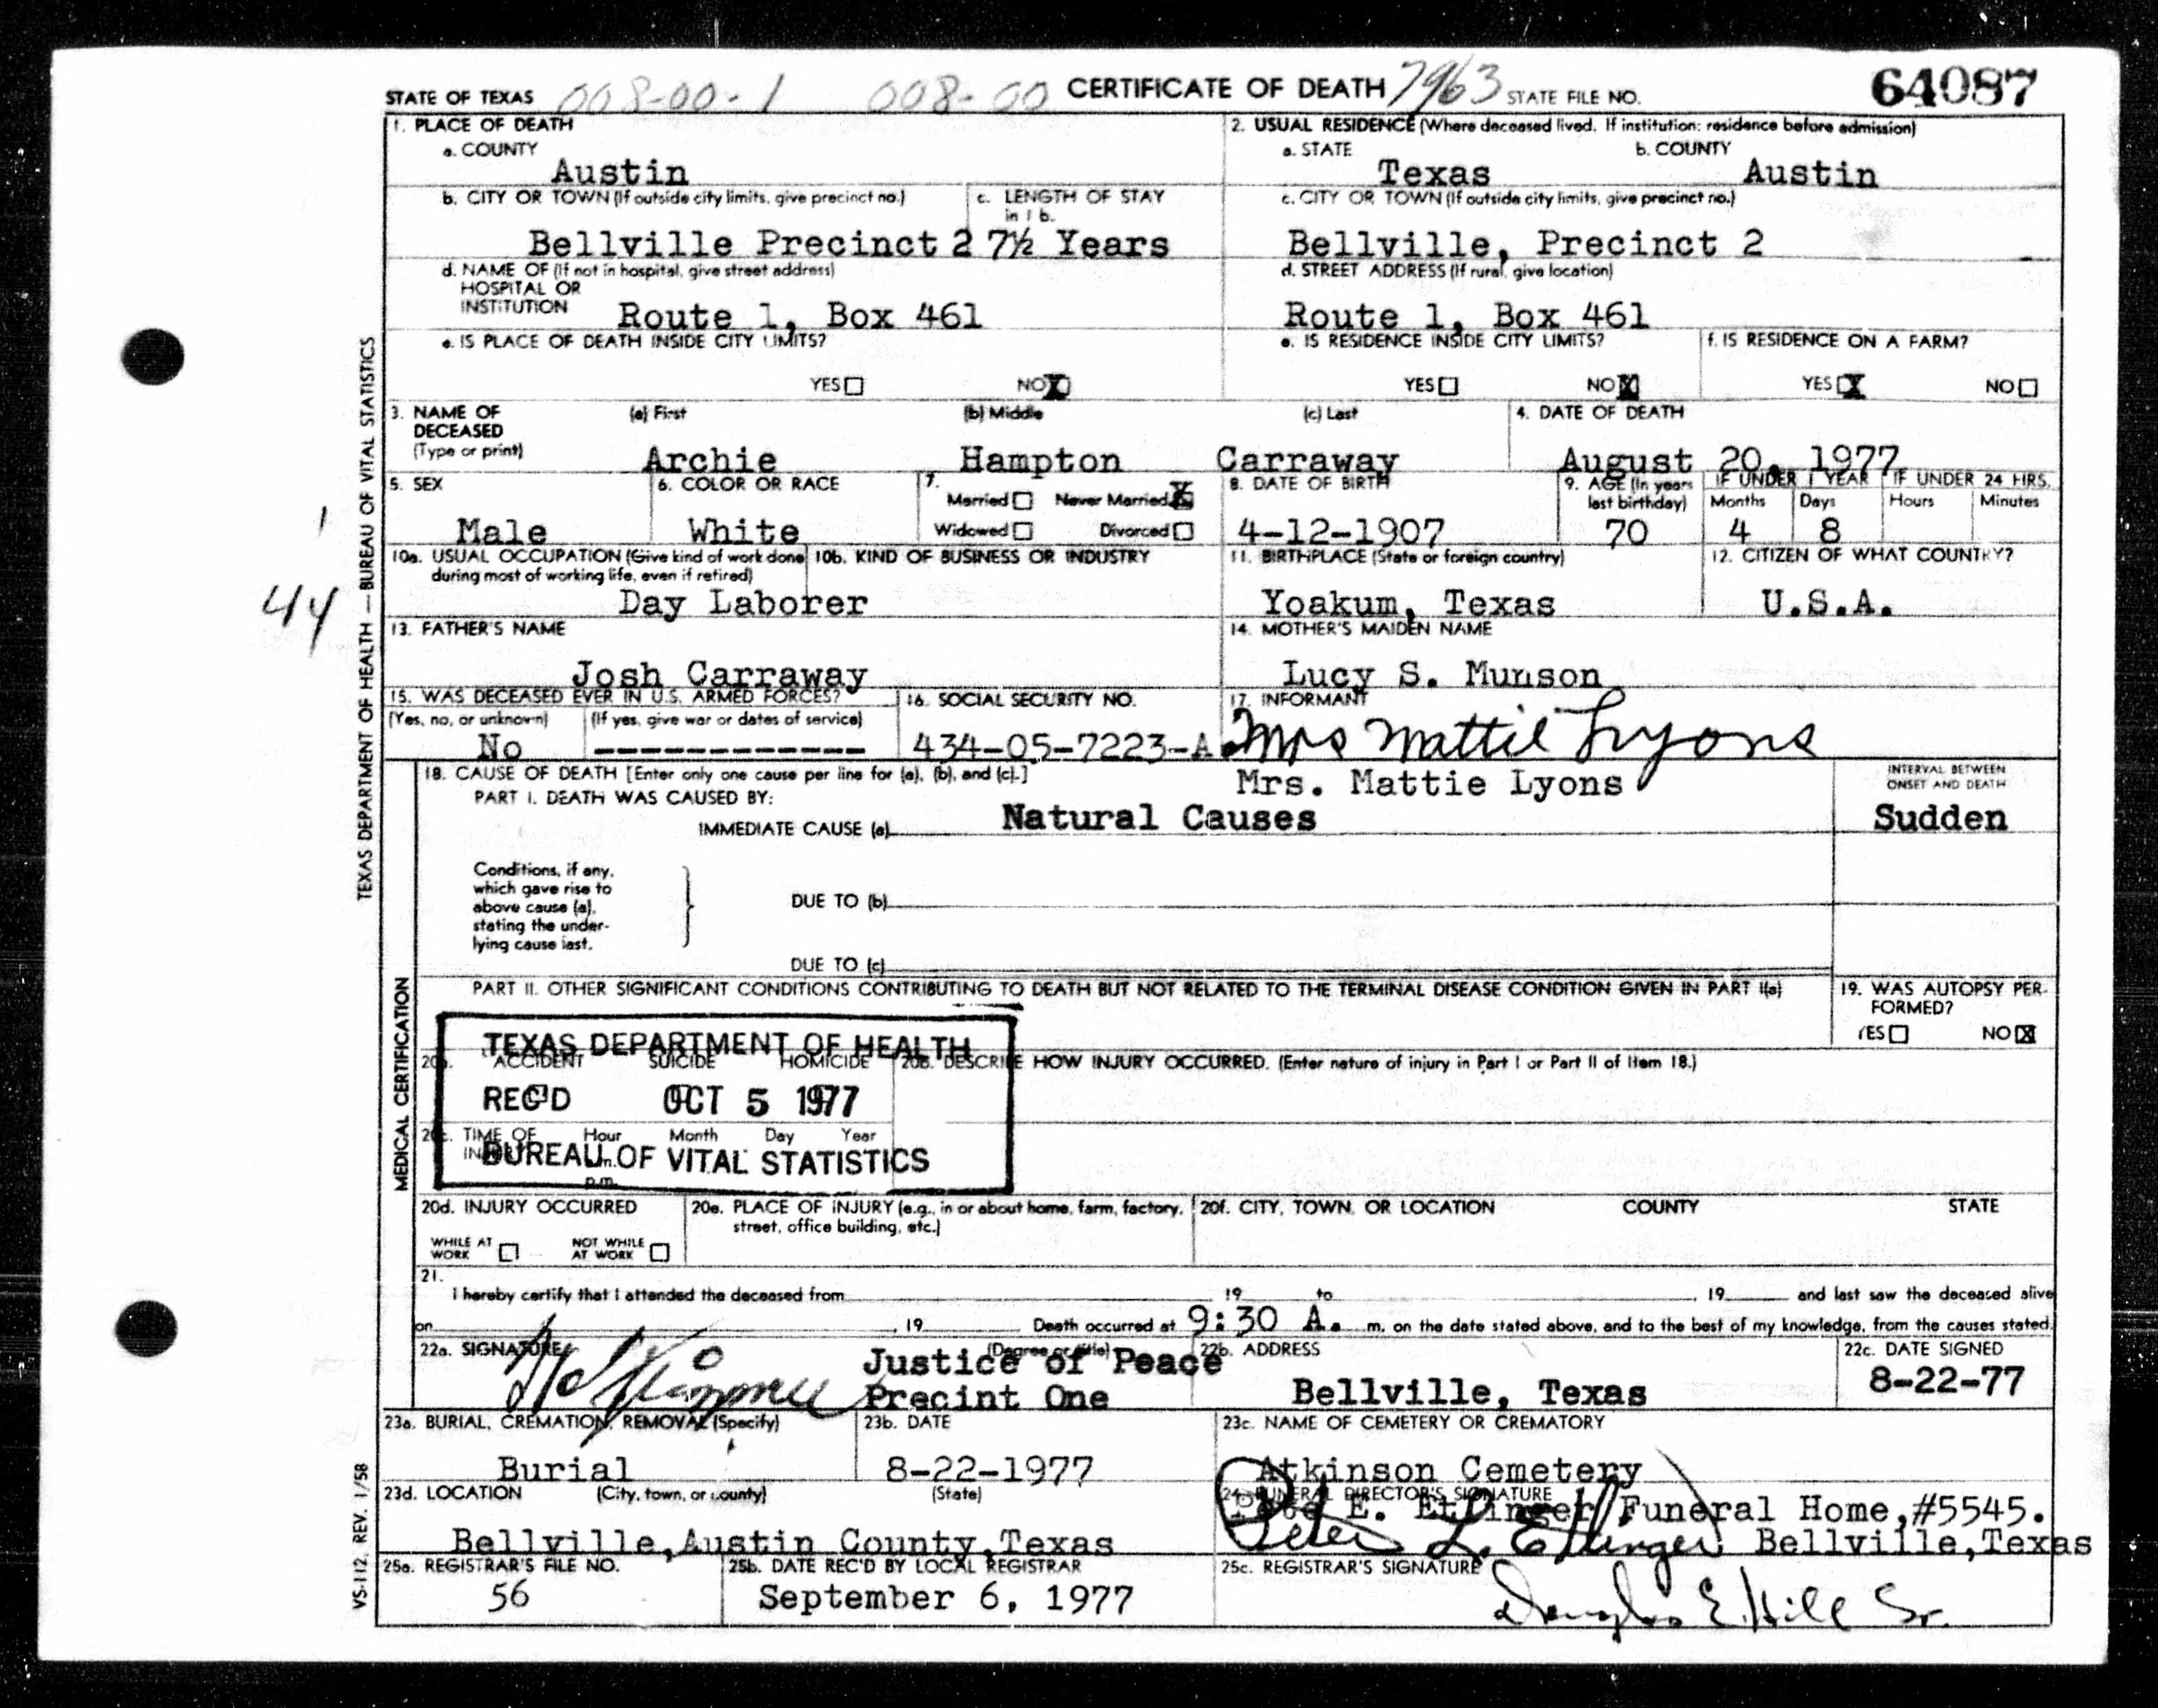 STATE OF TEXAS 008-00-1 008-00 CERTIFICATE OF DEATH 7963 STATE FILE NO. 64087
1. PLACE OF DEATH
a. COUNTY
Austin
2. USUAL RESIDENCE (Where deceased lived. If institution: residence before admission)
a. STATE
Texas
b. COUNTY
Austin
b. CITY OR TOWN (If outside city limits, give precinct no.)
Bellville Precinct 2
c. LENGTH OF STAY
in 1 b.
7½ Years
c. CITY OR TOWN (If outside city limits, give precinct no.)
Bellville, Precinct 2
d. NAME OF (If not in hospital, give street address)
HOSPITAL OR
INSTITUTION
Route 1, Box 461
d. STREET ADDRESS (If rural, give location)
Route 1, Box 461
e. IS PLACE OF DEATH INSIDE CITY LIMITS?
YES NO X
e. IS RESIDENCE INSIDE CITY LIMITS?
YES NO X
f. IS RESIDENCE ON A FARM?
YES X NO
3. NAME OF
DECEASED
(Type or print)
(a) First
Archie
(b) Middle
Hampton
(c) Last
Carraway
4. DATE OF DEATH
August 20, 1977
5. SEX
Male
6. COLOR OR RACE
White
7.
Married Never Married X
Widowed Divorced
8. DATE OF BIRTH
4-12-1907
9. AGE (In years
last birthday)
70
IF UNDER 1 YEAR
Months Days
4 8
IF UNDER 24 HRS.
Hours Minutes
10a. USUAL OCCUPATION (Give kind of work done
during most of working life, even if retired)
Day Laborer
10b. KIND OF BUSINESS OR INDUSTRY
11. BIRTHPLACE (State or foreign country)
Yoakum, Texas
12. CITIZEN OF WHAT COUNTRY?
U.S.A.
13. FATHER'S NAME
Josh Carraway
14. MOTHER'S MAIDEN NAME
Lucy S. Munson
15. WAS DECEASED EVER IN U.S. ARMED FORCES?
(Yes, no, or unknown) (If yes, give war or dates of service)
No ------------
16. SOCIAL SECURITY NO.
434-05-7223-A
17. INFORMANT
Mrs Mattie Lyons
Mrs. Mattie Lyons
18. CAUSE OF DEATH [Enter only one cause per line for (a), (b), and (c).]
PART I. DEATH WAS CAUSED BY:
IMMEDIATE CAUSE (a) Natural Causes
INTERVAL BETWEEN
ONSET AND DEATH
Sudden
Conditions, if any,
which gave rise to
above cause (a),
stating the under-
lying cause last.
DUE TO (b)
DUE TO (c)
PART II. OTHER SIGNIFICANT CONDITIONS CONTRIBUTING TO DEATH BUT NOT RELATED TO THE TERMINAL DISEASE CONDITION GIVEN IN PART I(a)
19. WAS AUTOPSY PER-
FORMED?
YES NO X
TEXAS DEPARTMENT OF HEALTH
REC'D OCT 5 1977
BUREAU OF VITAL STATISTICS
20a. ACCIDENT SUICIDE HOMICIDE
20b. DESCRIBE HOW INJURY OCCURRED. (Enter nature of injury in Part I or Part II of Item 18.)
20c. TIME OF Hour Month Day Year
p.m.
20d. INJURY OCCURRED
WHILE AT
WORK
NOT WHILE
AT WORK
20e. PLACE OF INJURY (e.g., in or about home, farm, factory,
street, office building, etc.)
20f. CITY, TOWN, OR LOCATION COUNTY STATE
21.
I hereby certify that I attended the deceased from 19 to , 19 and last saw the deceased alive
on , 19 Death occurred at 9:30 A. m. on the date stated above, and to the best of my knowledge, from the causes stated.
22a. SIGNATURE (Degree or title)
Justice of Peace
Precint One
22b. ADDRESS
Bellville, Texas
22c. DATE SIGNED
8-22-77
23a. BURIAL, CREMATION, REMOVAL (Specify)
Burial
23b. DATE
8-22-1977
23c. NAME OF CEMETERY OR CREMATORY
Atkinson Cemetery
23d. LOCATION (City, town, or county) (State)
Bellville, Austin County, Texas
24. FUNERAL DIRECTOR'S SIGNATURE
E. Etlinger Funeral Home, #5545.
Peter L. Etlinger Bellville, Texas
25a. REGISTRAR'S FILE NO.
56
25b. DATE REC'D BY LOCAL REGISTRAR
September 6, 1977
25c. REGISTRAR'S SIGNATURE
Douglas E. Hill Sr.
TEXAS DEPARTMENT OF HEALTH — BUREAU OF VITAL STATISTICS
MEDICAL CERTIFICATION
VS-112. REV. 1/58
1
44